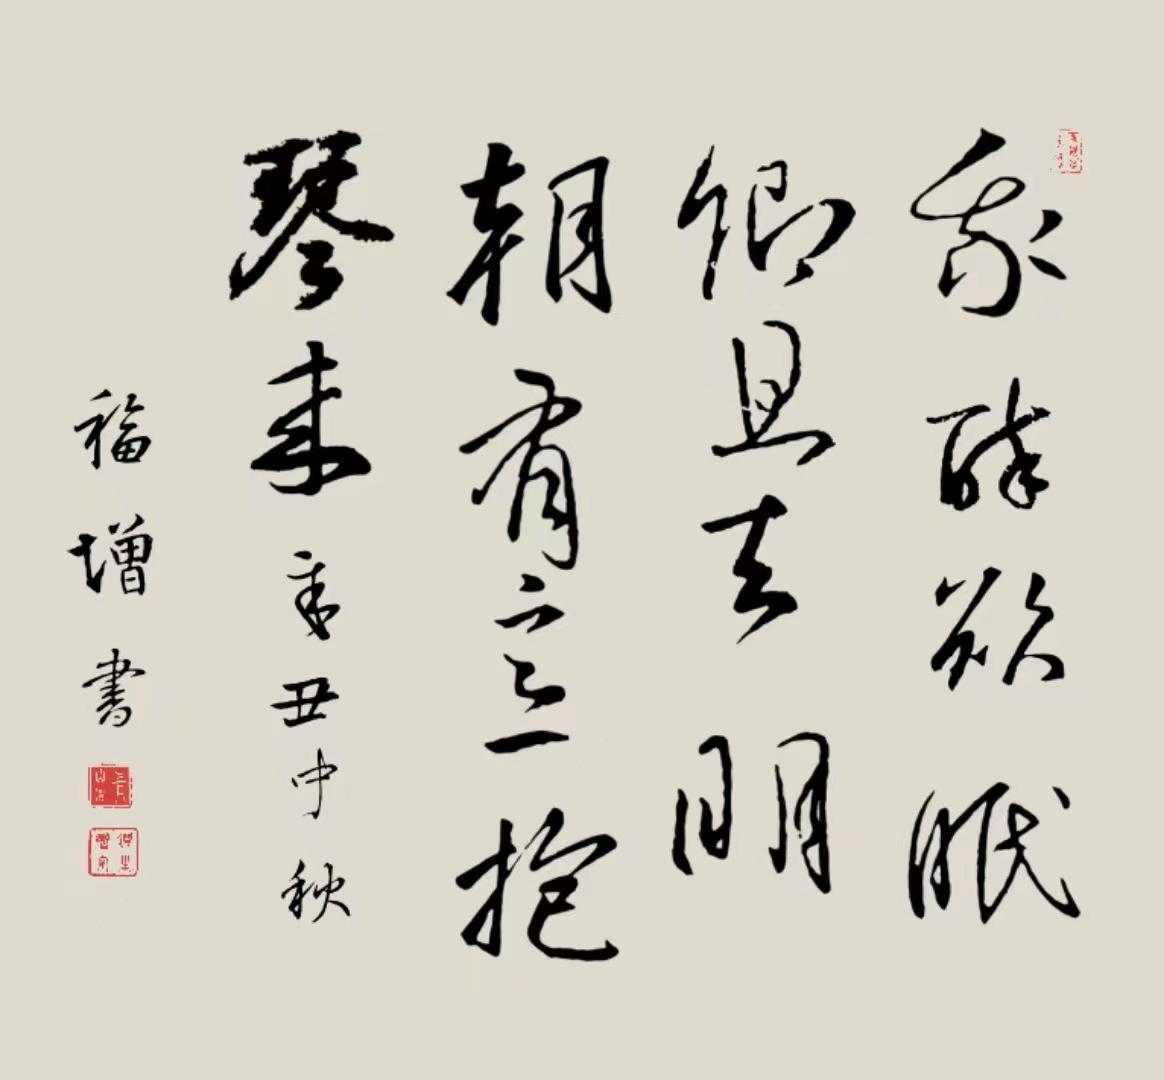 我醉欲眠
卿且去明
朝有意抱
琴来辛丑中秋
福增书